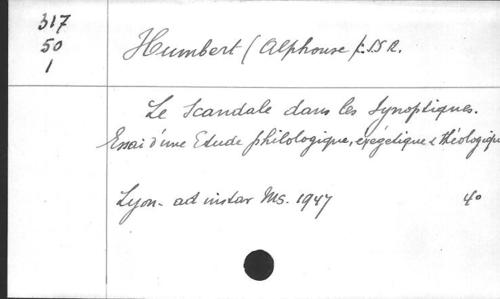 317
50
1
Humbert (Alphonse) C.SS.R.
Le Scandale dans les Synoptiques.
Essai d'une Etude philologique, exégétique & théologique
Lyon - ad instar Ms. 1947 4o